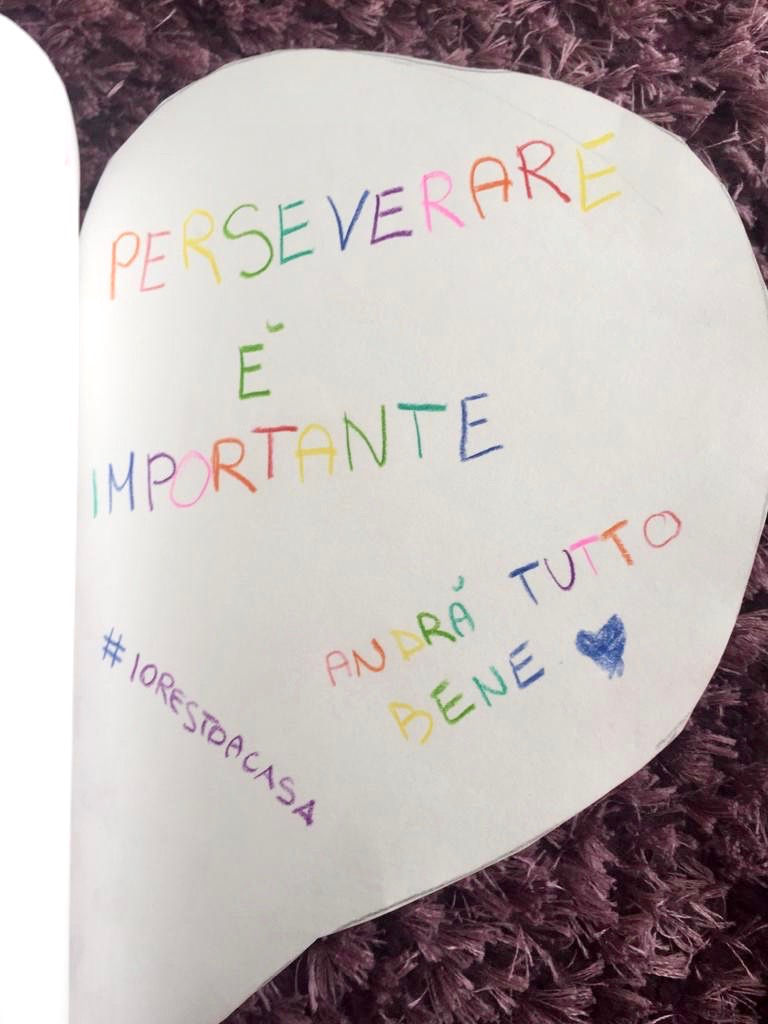 PERSEVERARE
É
IMPORTANTE
ANDRÁ TUTTO
BENE
#IORESTOACASA